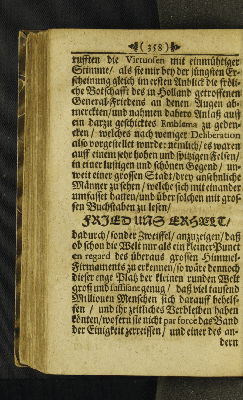 ( 358 )
rufften die Virtuosen mit einmühtiger
Stimme/ als sie mir bey der jüngsten Er-
scheinung gleich im ersten Anblick die fröli-
che Botschafft des in Holland getroffenen
General-Friedens an denen Augen ab-
merckten/ und nahmen dahero Anlaß auff
ein darzu geschicktes Emblema zu geden-
cken/ welches nach weniger Deliberation
also vorgestellet wurde: nemlich/ es waren
auff einem sehr hohen und spitzigen Felsen/
in einer lustigen und schönen Gegend / un-
weit einer grossen Stadt/ drey ansehnliche
Männer zu sehen/ welche sich mit einander
umfasset hatten/ und über solchen mit gros-
sen Buchstaben zu lesen/
FRIED UNS ERHÆLT/
dadurch/ sonder Zweiffel/ anzuzeigen/ daß
ob schon die Welt nur als ein kleiner Punct
en regard des überaus grossen Himmel-
Firmaments zu erkennen/ so wäre dennoch
dieser enge Platz der kleinen runden Welt
groß und suffisant genug/ daß viel tausend
Millionen Menschen sich darauff behelf-
fen / und ihr zeitliches Verbleiben haben
könten/ wofern sie nicht par force das Band
der Einigkeit zerreissen/ und einer des an-
dern